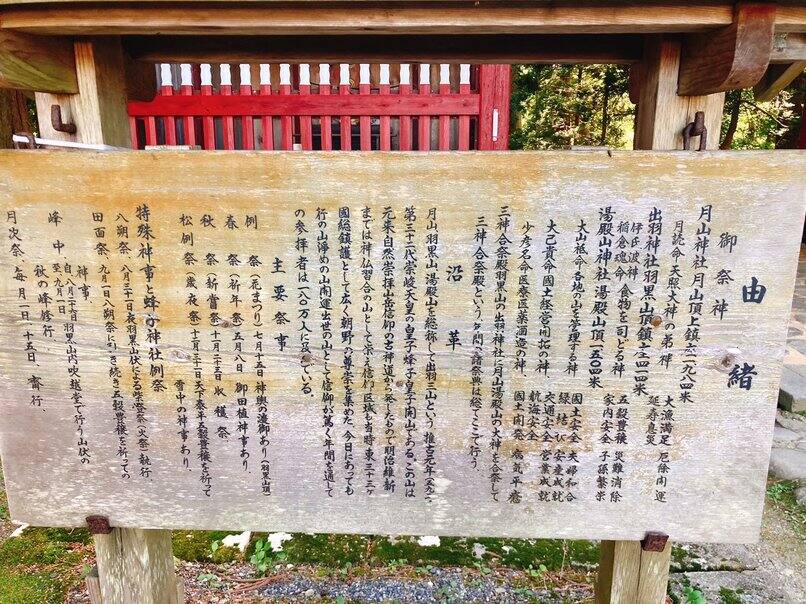 由緒
御祭神
月山神社月山頂上鎮座一九八四米
月読命 天照大神の弟神 大漁満足 厄除開運
延寿息災
出羽神社羽黒山頂鎮座四一四米
伊氐波神
稲倉魂命 食物を司どる神 五穀豊穣 災難消除
家内安全 子孫繁栄
湯殿山神社 湯殿山頂一五〇四米
大山祗命 各地の山を管理する神 国土安全 夫婦和合
縁結び 安産成就
大己貴命 国土経営開拓の神 交通安全 営業成就
航海安全
少彦名命 医療医薬酒造の神 国土開発 病気平癒
三神合祭殿羽黒山の出羽神社に月山湯殿山の大神を合祭して
三神合祭殿という年間の諸祭典は総てここで行う。
沿革
月山、羽黒山、湯殿山を総称して出羽三山という 推古元年(五九三)
第三十二代崇峻天皇の皇子蜂子皇子開山である。この山は
元来自然崇拝山岳信仰の古神道から発したもので明治維新
までは神仏習合の山として栄え信仰区域も当時東三十三ヶ
國総鎮護として広く朝野の尊崇を集めた、今日にあっても
行の山浄めの山開運出世の山として信仰が篤く年間を通して
の参拝者は一八〇万人に及んでいる。
主要祭事
例祭(花まつり)七月十五日 神輿の渡御あり(羽黒山頂)
春祭(祈年祭)五月八日 御田植神事あり、
秋祭(新嘗祭)十一月二十三日 収穫祭、
松例祭(歳夜祭)十二月三十一日天下泰平五穀豊穣を祈って
雪中の神事あり、
特殊神事と蜂子神社例祭
八朔祭、八月三十一日夜羽黒山伏による柴燈祭(火祭)執行
田面祭、九月一日八朔祭に引き続き五穀豊穣を祈っての
神事、
峰中、自八月二十六日羽黒山内吹越堂で行う山伏の
至九月一日
秋の峰修行、
月次祭、毎月一日、十五日、斎行、